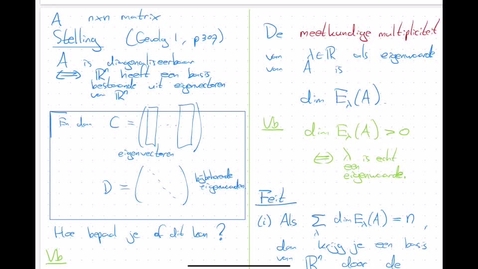 A n×n matrix
Stelling (Gevolg 1, p309)
A is diagonaliseerbaar
⟺ ℝⁿ heeft een basis
bestaande uit eigenvectoren
van ℝⁿ
En dan C = ( ... )
eigenvectoren
D = ( ⋱ ) bijbehorende
eigenwaarden
Hoe bepaal je of dit kan?
Vb
De meetkundige multipliciteit
van λ∈ℝ als eigenwaarde
van A is
dim E_λ(A).
Vb dim E_λ(A) > 0
⟺ λ is echt
een
eigenwaarde.
Feit
(i) Als ∑_λ dim E_λ(A) = n,
dan krijg je een basis
van ℝⁿ door de